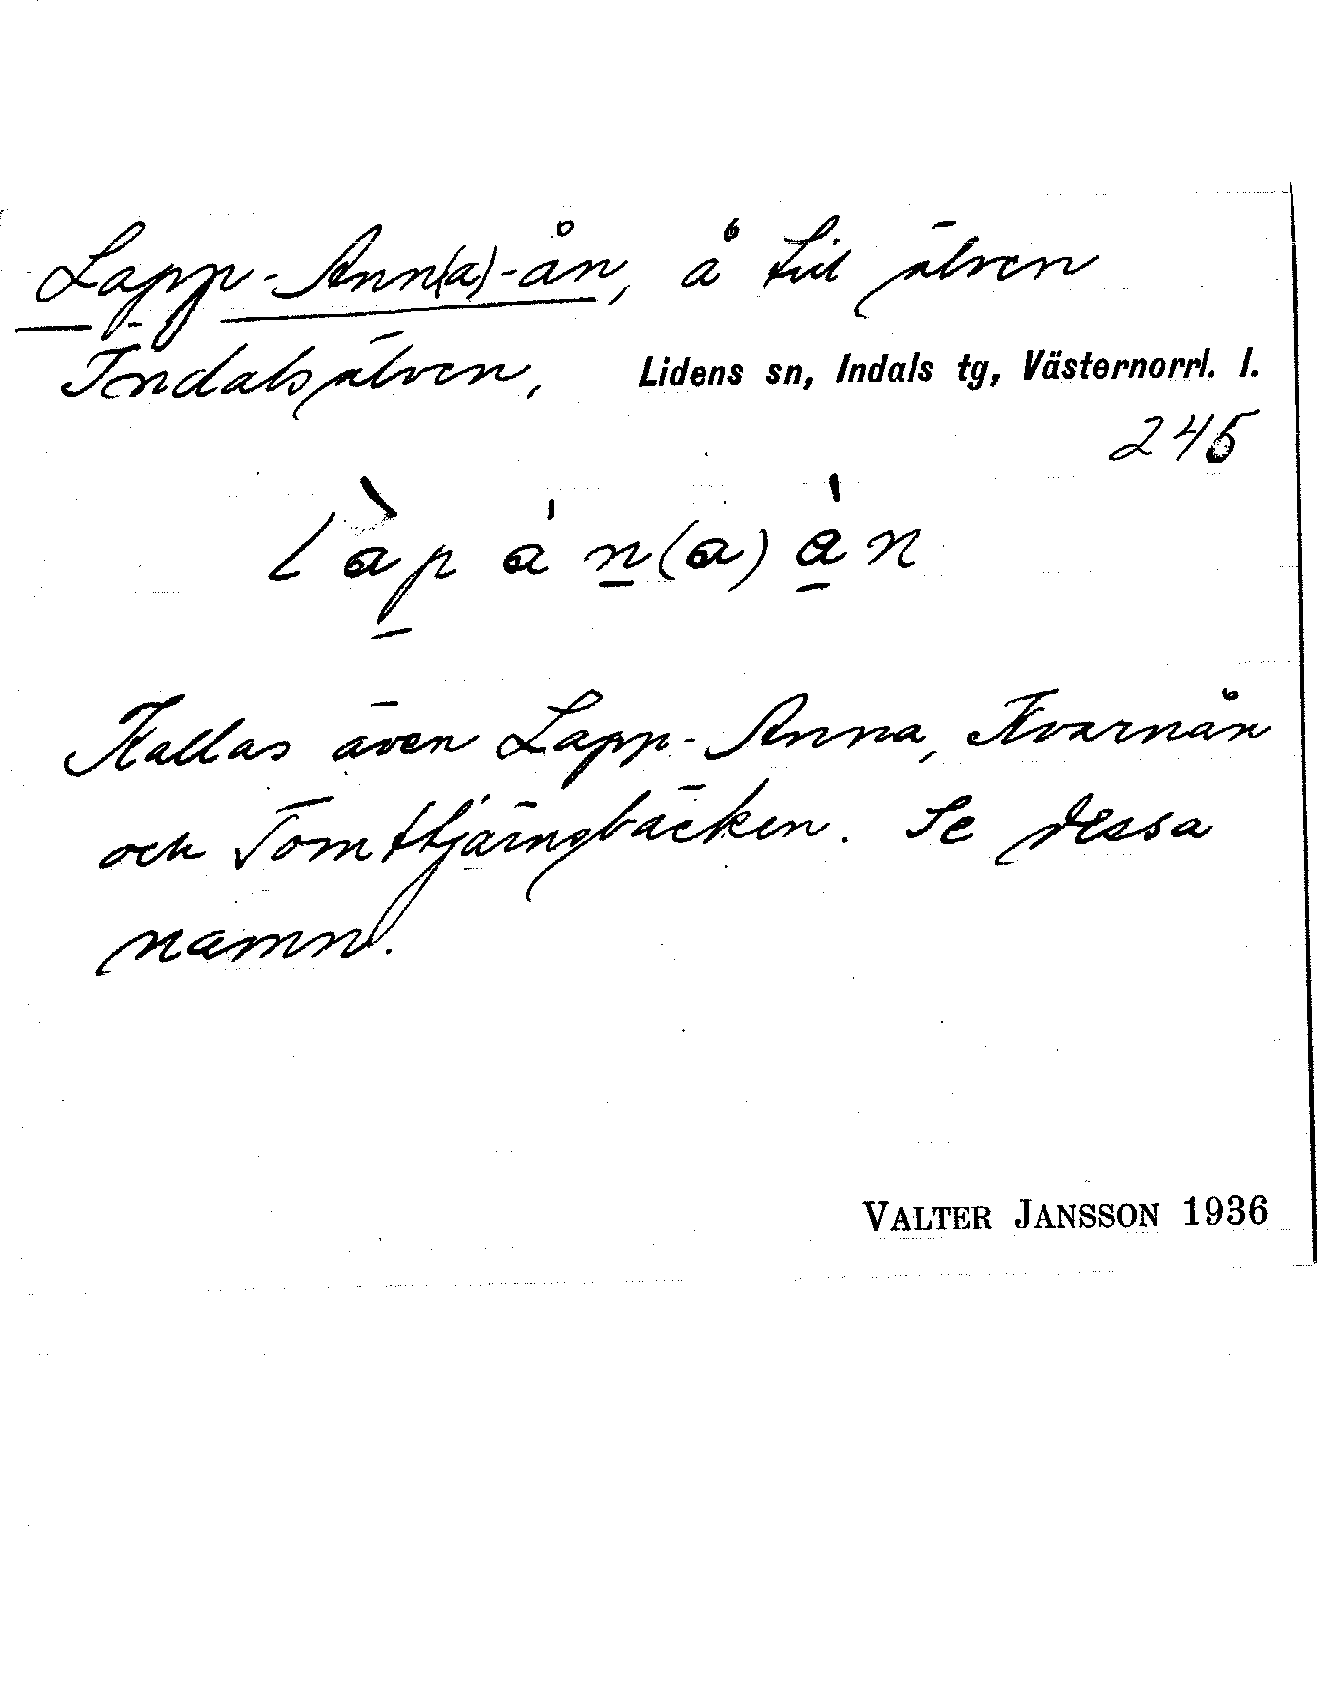 Lapp-Ann(a)-ån, å till älven
Indalsälven, Lidens sn, Indals tg, Västernorrl. l.
245
làp án(a)àn
Kallas även Lapp-Anna, Kvarnån
och Tomttjärngbäcken. Se dessa
namn.
VALTER JANSSON 1936